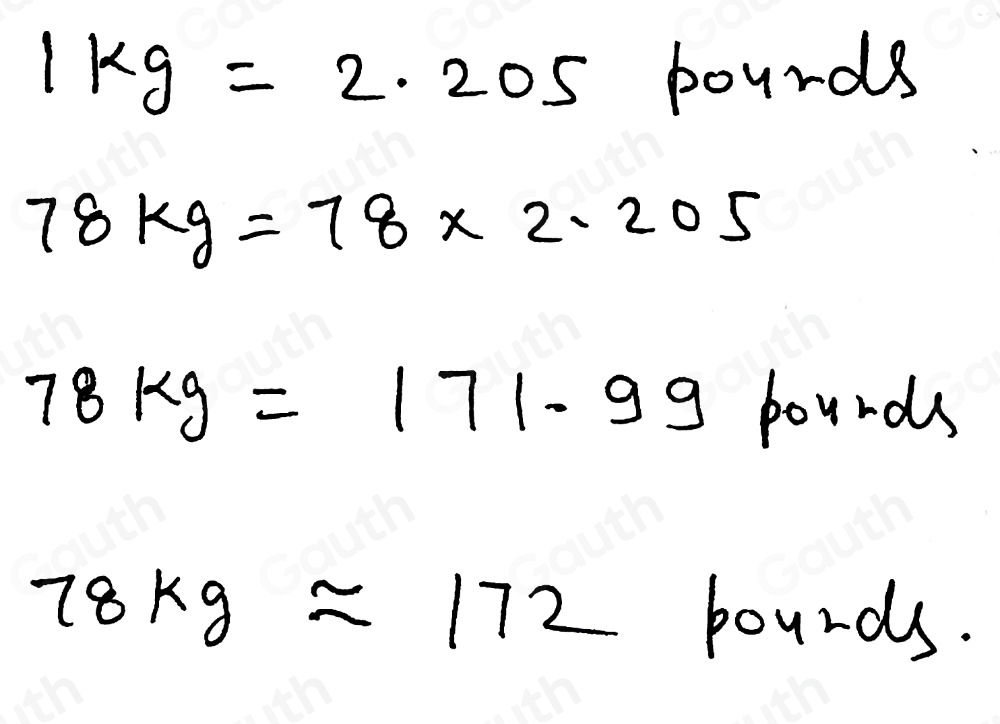 1 Kg = 2.205 pounds
78 Kg = 78 × 2.205
78 Kg = 171.99 pounds
78 Kg ≈ 172 pounds.